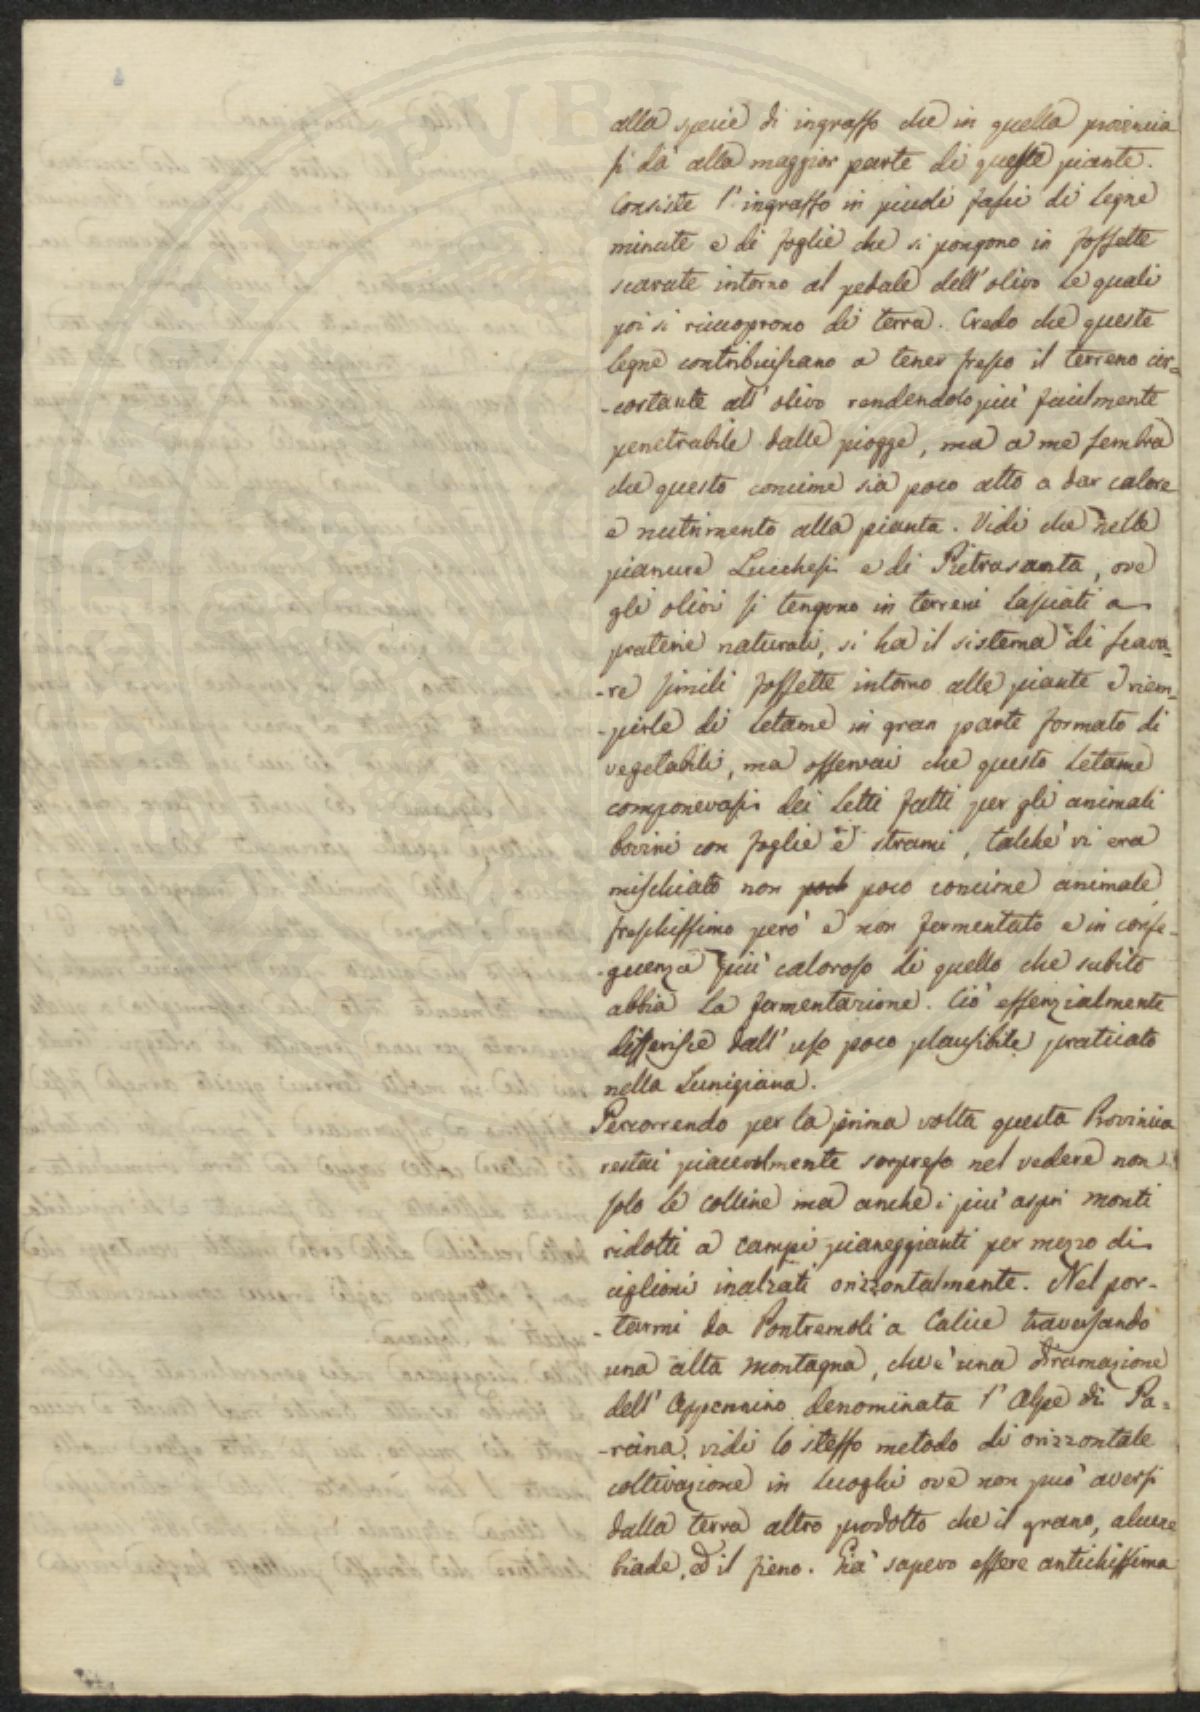 alla specie di ingrasso che in quella provincia
si dà alla maggior parte di queste piante.
Consiste l'ingrasso in piccoli fasci di legne
minute e di foglie che si pongono in fossette
scavate intorno al pedale dell'olivo le quali
poi si ricuoprono di terra. Credo che queste
legne contribuiscano a tener fresco il terreno cir=
-costante all'olivo rendendolo più facilmente
penetrabile dalle piogge, ma a me sembra
che questo concime sia poco atto a dar calore
e nutrimento alla pianta. Vidi che nelle
pianure Lucchesi e di Pietrasanta, ove
gli olivi si tengono in terreni lasciati a
praterie naturali, si ha il sistema di scava=
-re simili fossette intorno alle piante e riem=
-pirle di letame in gran parte formato di
vegetabili, ma osservai che questo letame
componevasi dei letti fatti per gli animali
bovini con foglie e strami, talchè vi era
mischiato non poco poco concime animale,
freschissimo però e non fermentato e in conse-
-guenza più caloroso di quello che subito
abbia la fermentazione. Ciò essenzialmente
differisce dall'uso poco plausibile praticato
nella Lunigiana.
Percorrendo per la prima volta questa Provincia
restai piacevolmente sorpreso nel vedere non
solo le colline ma anche i più aspri monti
ridotti a campi pianeggianti per mezzo di
ciglioni inalzati orizzontalmente. Nel por-
-tarmi da Pontremoli a Calice traversando
una alta montagna, che è una diramazione
dell'Appennino denominata l'Alpe di Pa=
-rana, vidi lo stesso metodo di orizzontale
coltivazione in luoghi ove non può aversi
dalla terra altro prodotto che il grano, alcune
biade, ed il fieno. Già sapevo essere antichissima